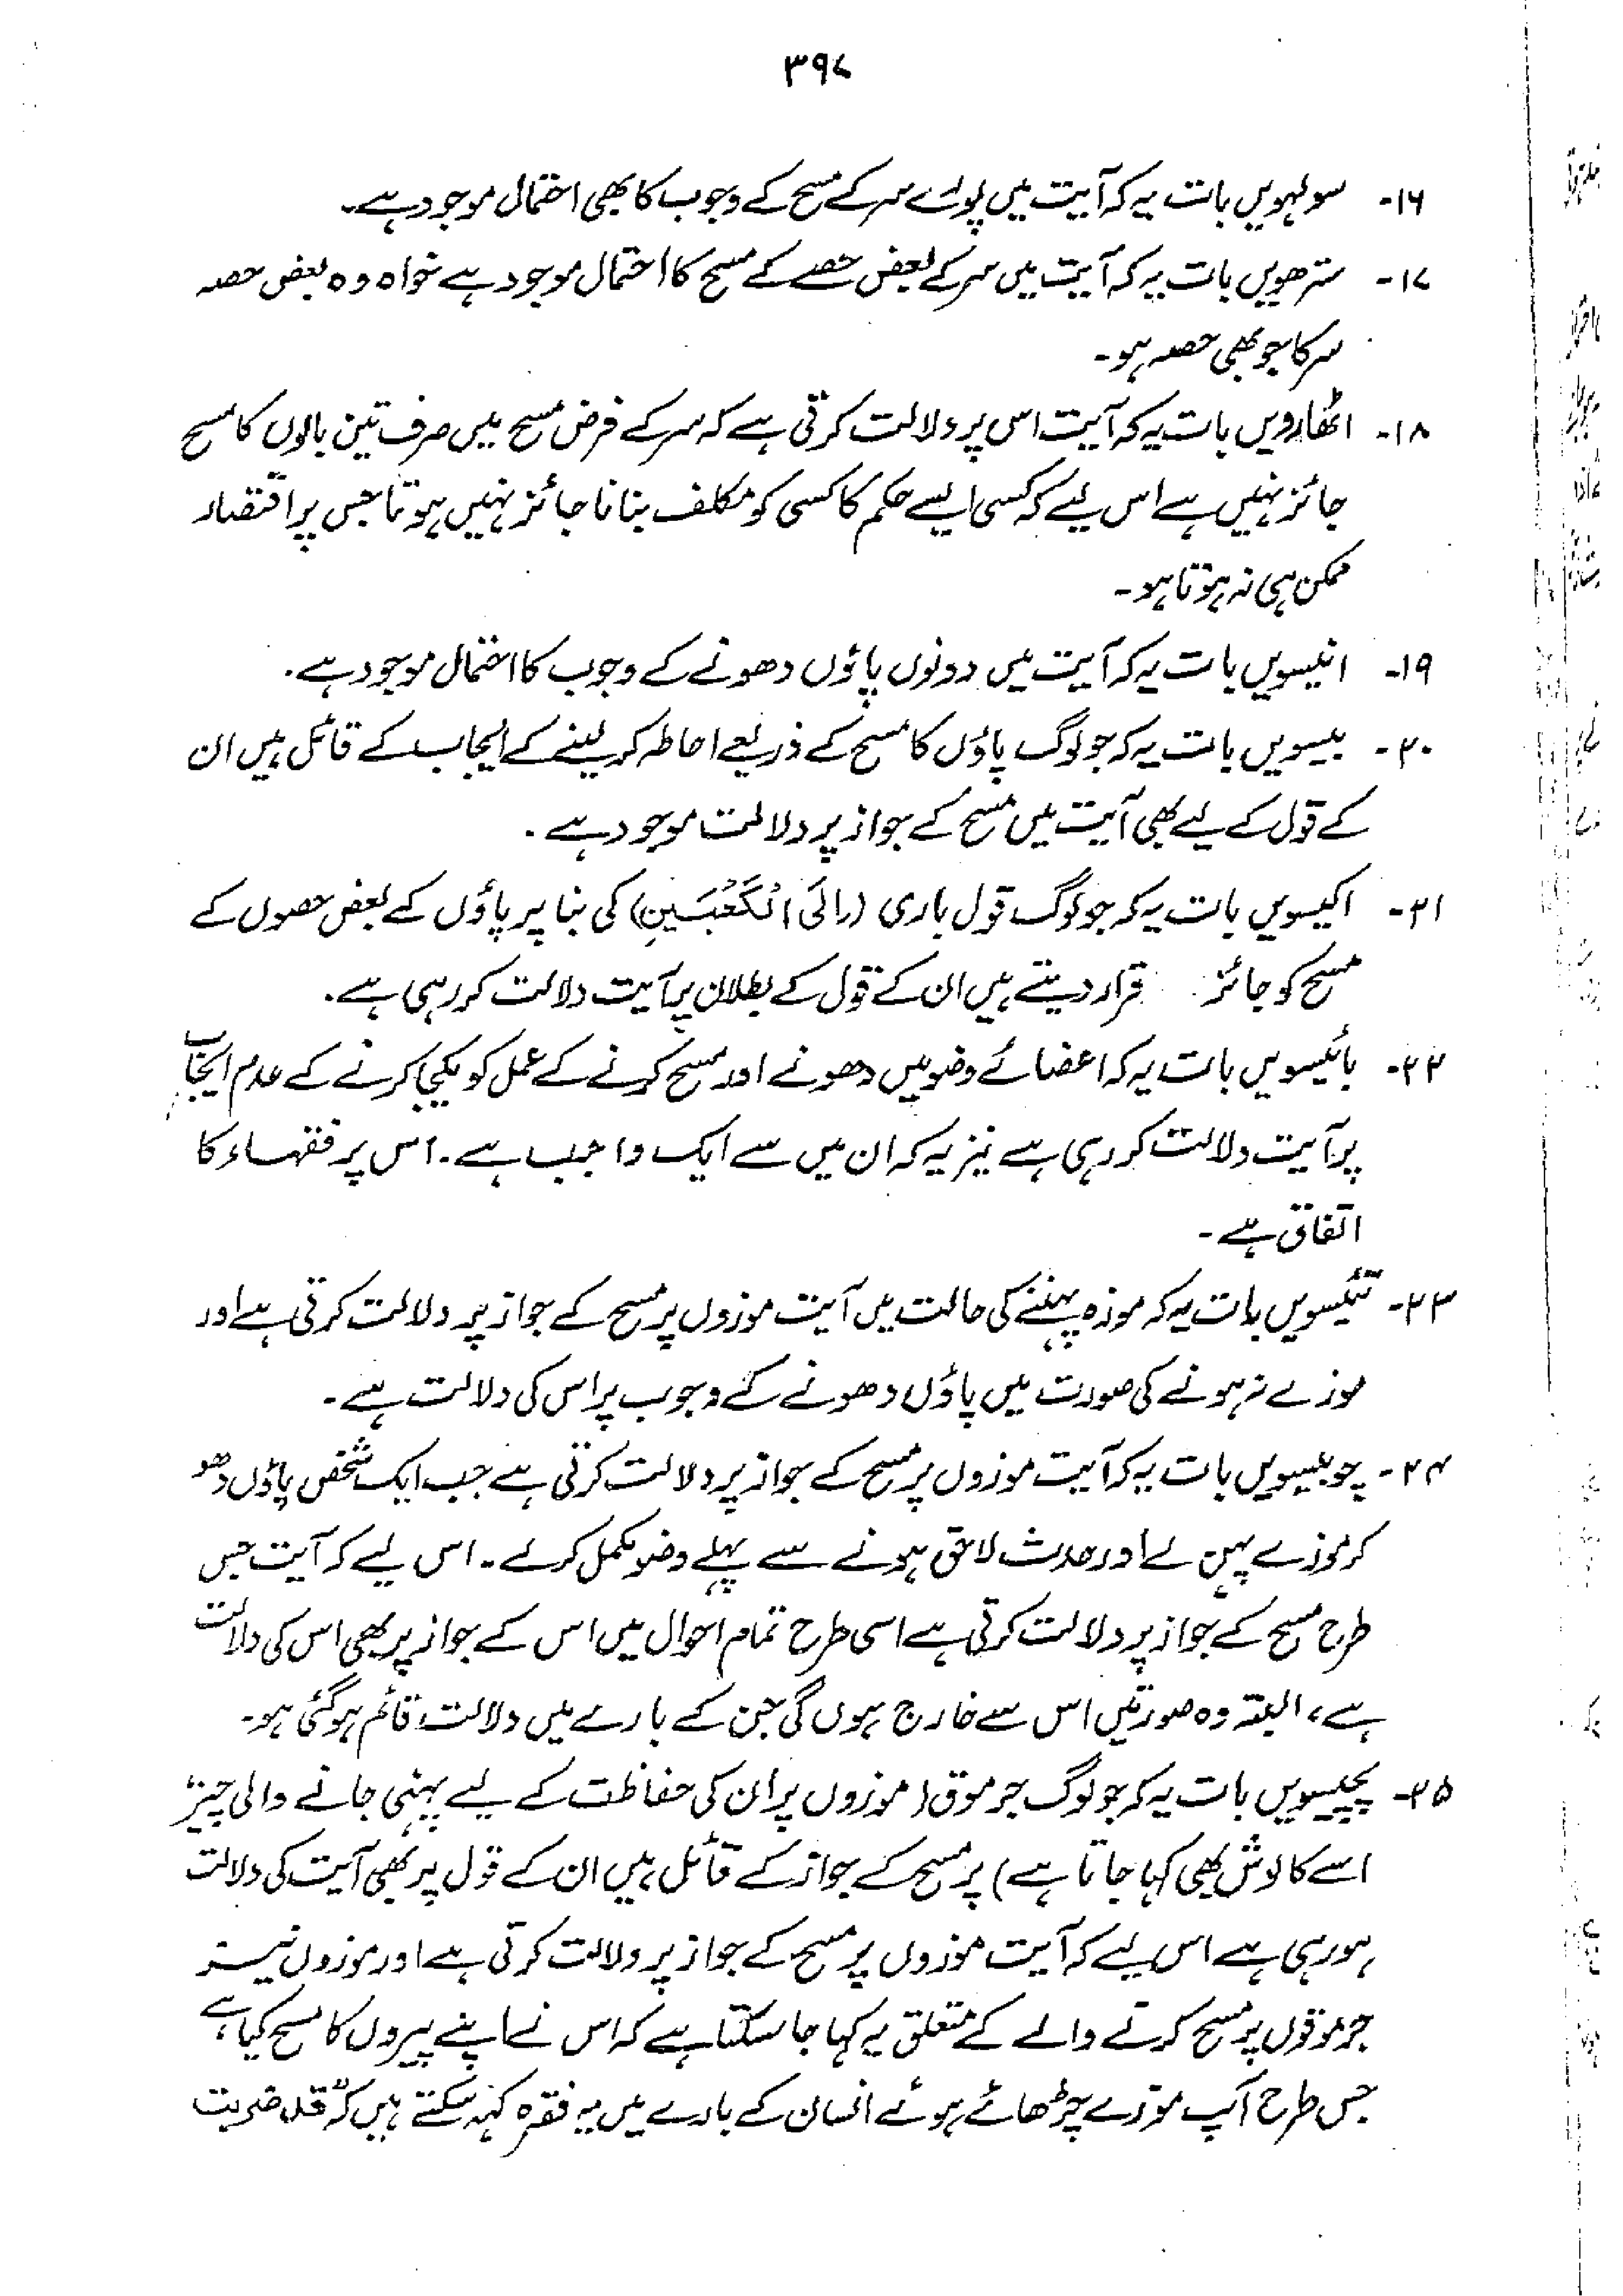 ۳۹۷
۱۶- سولہویں بات یہ کہ آیت میں پورے سر کے مسح کے وجوب کا بھی احتمال موجود ہے۔
۱۷- سترھویں بات یہ کہ آیت میں سر کے بعض حصے کے مسح کا احتمال موجود ہے خواہ وہ بعض حصہ
سر کا جو بھی حصہ ہو۔
۱۸- اٹھارویں بات یہ کہ آیت اس پر دلالت کرتی ہے کہ سر کے فرض مسح میں صرف تین بالوں کا مسح
جائز نہیں ہے اس لیے کہ کسی ایسے حکم کا کسی کو مکلف بنانا جائز نہیں ہوتا جس پر اقتصار
ممکن ہی نہ ہوتا ہو۔
۱۹- انیسویں بات یہ کہ آیت میں دونوں پاؤں دھونے کے وجوب کا احتمال موجود ہے۔
۲۰- بیسویں بات یہ کہ جو لوگ پاؤں کا مسح کے ذریعے احاطہ کر لینے کے ایجاب کے قائل ہیں ان
کے قول کے لیے بھی آیت میں مسح کے جواز پر دلالت موجود ہے۔
۲۱- اکیسویں بات یہ کہ جو لوگ قول باری (اِلَی الْکَعْبَیْنِ) کی بنا پر پاؤں کے بعض حصوں کے
مسح کو جائز قرار دیتے ہیں ان کے قول کے بطلان پر آیت دلالت کر رہی ہے۔
۲۲- بائیسویں بات یہ کہ اعضائے وضو میں دھونے اور مسح کرنے کے عمل کو یکجا کرنے کے عدم ایجاب
پر آیت دلالت کر رہی ہے نیز یہ کہ ان میں سے ایک واجب ہے۔ اس پر فقہاء کا
اتفاق ہے۔
۲۳- تئیسویں بات یہ کہ موزہ پہننے کی حالت میں آیت موزوں پر مسح کے جواز پر دلالت کرتی ہے اور
موزے نہ ہونے کی صورت میں پاؤں دھونے کے وجوب پر اس کی دلالت ہے۔
۲۴- چوبیسویں بات یہ کہ آیت موزوں پر مسح کے جواز پر دلالت کرتی ہے جب ایک شخص پاؤں دھو
کر موزے پہن لے اور حدث لاحق ہونے سے پہلے وضو مکمل کر لے۔ اس لیے کہ آیت جس
طرح مسح کے جواز پر دلالت کرتی ہے اسی طرح تمام احوال میں اس کے جواز پر بھی اس کی دلالت
ہے، البتہ وہ صورتیں اس سے خارج ہوں گی جن کے بارے میں دلالت قائم ہو گئی ہو۔
۲۵- پچیسویں بات یہ کہ جو لوگ جرموق (موزوں پر ان کی حفاظت کے لیے پہنی جانے والی چیز
اسے کالوش بھی کہا جاتا ہے) پر مسح کے جواز کے قائل ہیں ان کے قول پر بھی آیت کی دلالت
ہو رہی ہے اس لیے کہ آیت موزوں پر مسح کے جواز پر دلالت کرتی ہے اور موزوں نیز
جرموقوں پر مسح کرنے والے کے متعلق یہ کہا جا سکتا ہے کہ اس نے اپنے پیروں کا مسح کیا ہے،
جس طرح آپ موزے چڑھائے ہوئے انسان کے بارے میں یہ فقرہ کہہ سکتے ہیں کہ "قد ضربت